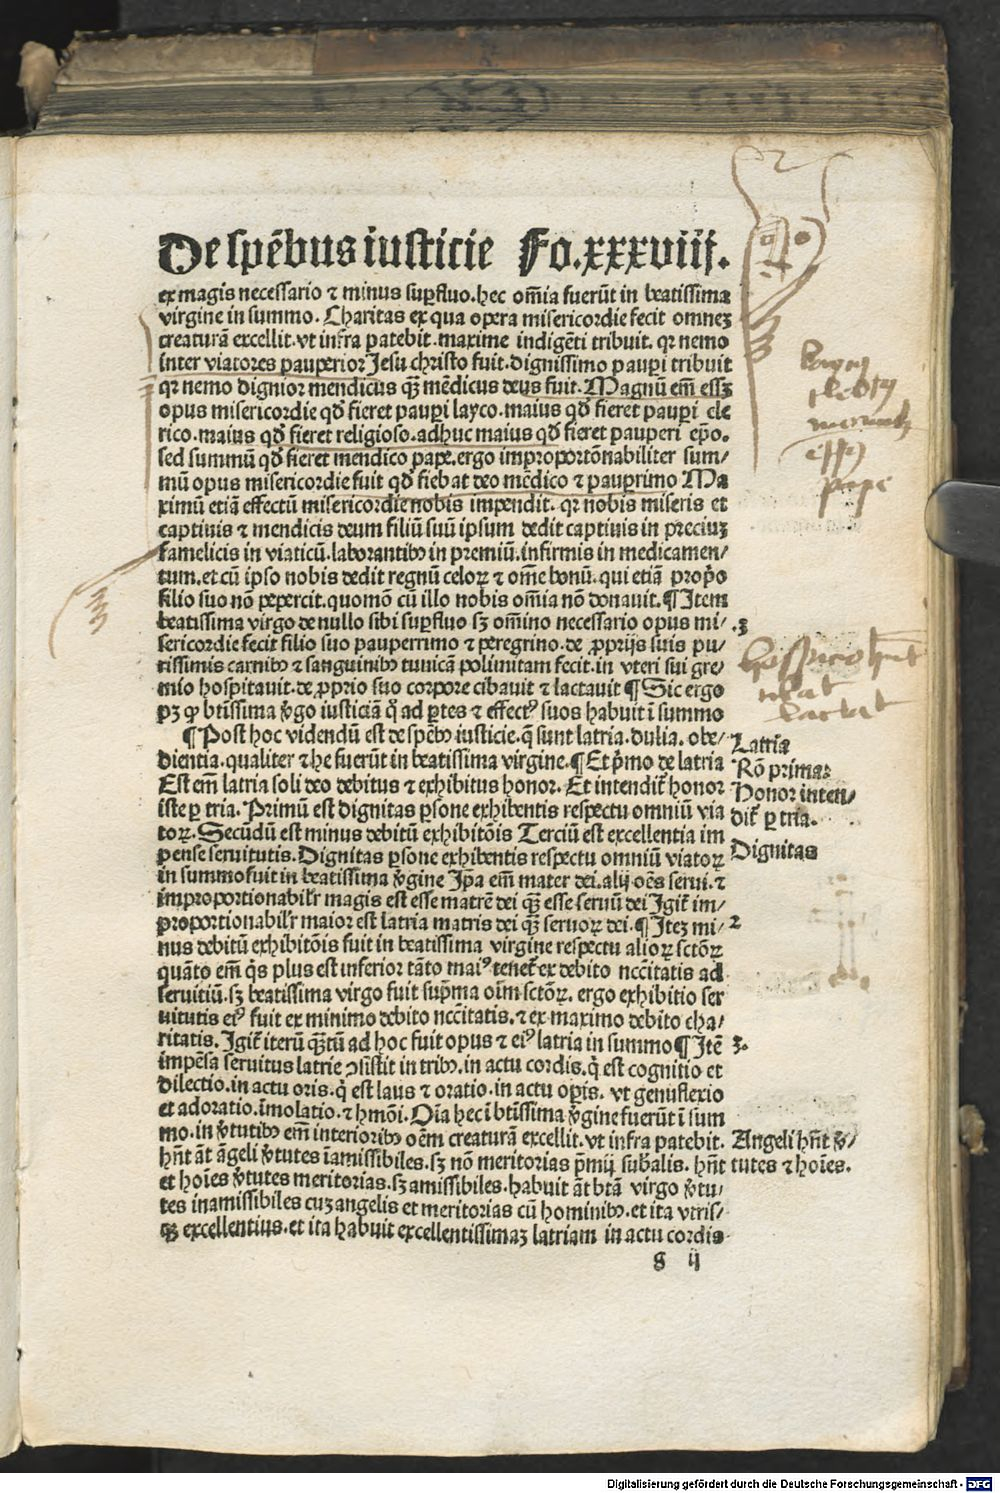 De spēbus iusticie Fo.xxxviij.
ex magis necessario ⁊ minus suꝑfluo. hec om̄ia fuerūt in beatissima
virgine in summo. Charitas ex qua opera misericordie fecit omneꝫ
creaturā excellit. vt infra patebit. maxime indigēti tribuit. qr nemo
inter viatores pauperior Jesu christo fuit. dignissimo pauꝑi tribuit
qr nemo dignior mendicus qꝫ mēdicus deus fuit. Magnū em̄ essꝫ
opus misericordie qď fieret pauꝑi layco. maius qď fieret pauꝑi cle
rico. maius qď fieret religioso. adhuc maius qď fieret pauperi ep̄o.
sed summū qď fieret mendico pape. ergo improportōnabiliter sum/
mū opus misericordie fuit qď fiebat deo mēdico ⁊ pauꝑrimo Ma
ximū etiā effectū misericordie nobis impendit. qr nobis miseris et
captiuis ⁊ mendicis deum filiū suū ipsum dedit captiuis in preciuꝫ
famelicis in viaticū. laborantibꝰ in premiū. infirmis in medicamen/
tum. et cū ipso nobis dedit regnū celoꝝ ⁊ om̄e bonū. qui etiā prop̄o
filio suo nō pepercit. quomō cū illo nobis om̄ia nō donauit. ¶ Item
beatissima virgo de nullo sibi suꝑfluo sꝫ om̄ino necessario opus mi/
sericordie fecit filio suo pauperrimo ⁊ peregrino. de ꝓprijs suis pu/
rissimis carnibꝰ ⁊ sanguinibꝰ tunicā polimitam fecit. in vteri sui gre/
mio hospitauit. de ꝓprio suo corpore cibauit ⁊ lactauit ¶ Sic ergo
pꝫ ꝙ btīssima v̄go iusticiā q̊ ad ꝑtes ⁊ effectꝰ suos habuit ī summo
¶ Post hoc videndū est de spēbꝰ iusticie. q̄ sunt latria. dulia. obe/
dientia. qualiter ⁊ he fuerūt in beatissima virgine. ¶ Et p̄mo de latria
Est em̄ latria soli deo debitus ⁊ exhibitus honor. Et intendit̄ honor
iste ꝑ tria. Primū est dignitas ꝑsone exhibentis respectu omniū via
toꝝ. Secūdū est minus debitū exhibitōis Terciū est excellentia im
pense seruitutis. Dignitas ꝑsone exhibentis respectu omniū viatoꝝ
in summo fuit in beatissima v̄gine Ip̄a em̄ mater dei. alij oēs serui. ⁊
improportionabilr̄ magis est esse matrē dei qꝫ esse seruū dei Igit̄ im/
proportionabilr̄ maior est latria matris dei qꝫ seruoꝝ dei. ¶ Iteꝫ mi/
nus debitū exhibitōis fuit in beatissima virgine respectu alioꝝ sctōꝝ
quāto em̄ q̄s plus est inferior tāto maiꝰ tenet̄ ex debito nccītatis ad
seruitiū. sꝫ beatissima virgo fuit sup̄ma oīm sctōꝝ. ergo exhibitio ser
uitutis eiꝰ fuit ex minimo debito nccītatis. ⁊ ex maximo debito cha/
ritatis. Igit̄ iterū qꝫtū ad hoc fuit opus ⁊ eiꝰ latria in summo ¶ Itē
impēsa seruitus latrie ꝯsistit in tribꝰ. in actu cordis. q̄ est cognitio et
dilectio. in actu oris. q̄ est laus ⁊ oratio. in actu oꝑis. vt genuflexio
et adoratio. īmolatio. ⁊ hmōi. Oīa hec ī btīssima v̄gine fuerūt ī sum
mo. in v̄tutibꝰ em̄ interioribꝰ oēm creaturā excellit. vt infra patebit.
hn̄t āt āgeli v̄tutes īamissibiles. sꝫ nō meritorias p̄mij sub̄alis. hn̄t
et hoīes v̄tutes meritorias. sꝫ amissibiles. habuit āt btā virgo v̄tu/
tes inamissibiles cuꝫ angelis et meritorias cū hominibꝰ. et ita vtris/
qꝫ excellentius. et ita habuit excellentissimaꝫ latriam in actu cordis
g ij
pape
.3
lactat
Latria
Rō prima:
Honor inten/
dit̄ ꝑ tria.
Dignitas
2
3.
Angeli hn̄t v̄/
tutes ⁊ hoīes.
Digitalisierung gefördert durch die Deutsche Forschungsgemeinschaft - DFG